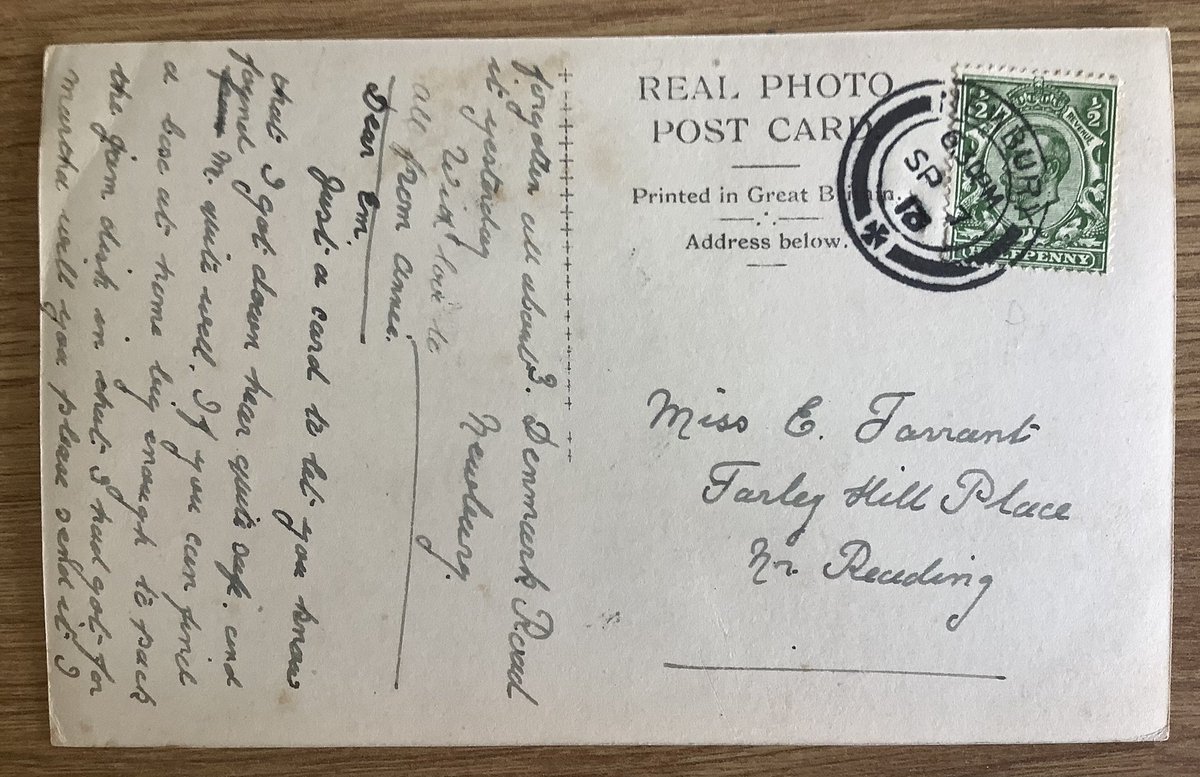 REAL PHOTO
POST CARD
Printed in Great Britain.
Address below.
½ ½
REVENUE
HALFPENNY
BURY
6 30 PM
SP
13
Miss E. Tarrant
Farley Hill Place
Nr. Reading
3. Denmark Road
Newbury.
Dear Em.
Just a card to let you know
that I got down hear quite safe. and
found M. quite well. If you can find
a box at home big enough to pack
the jam dish in that I had got for
will you please send it I
forgotten all about
it yesterday
With love to
all from Annie.